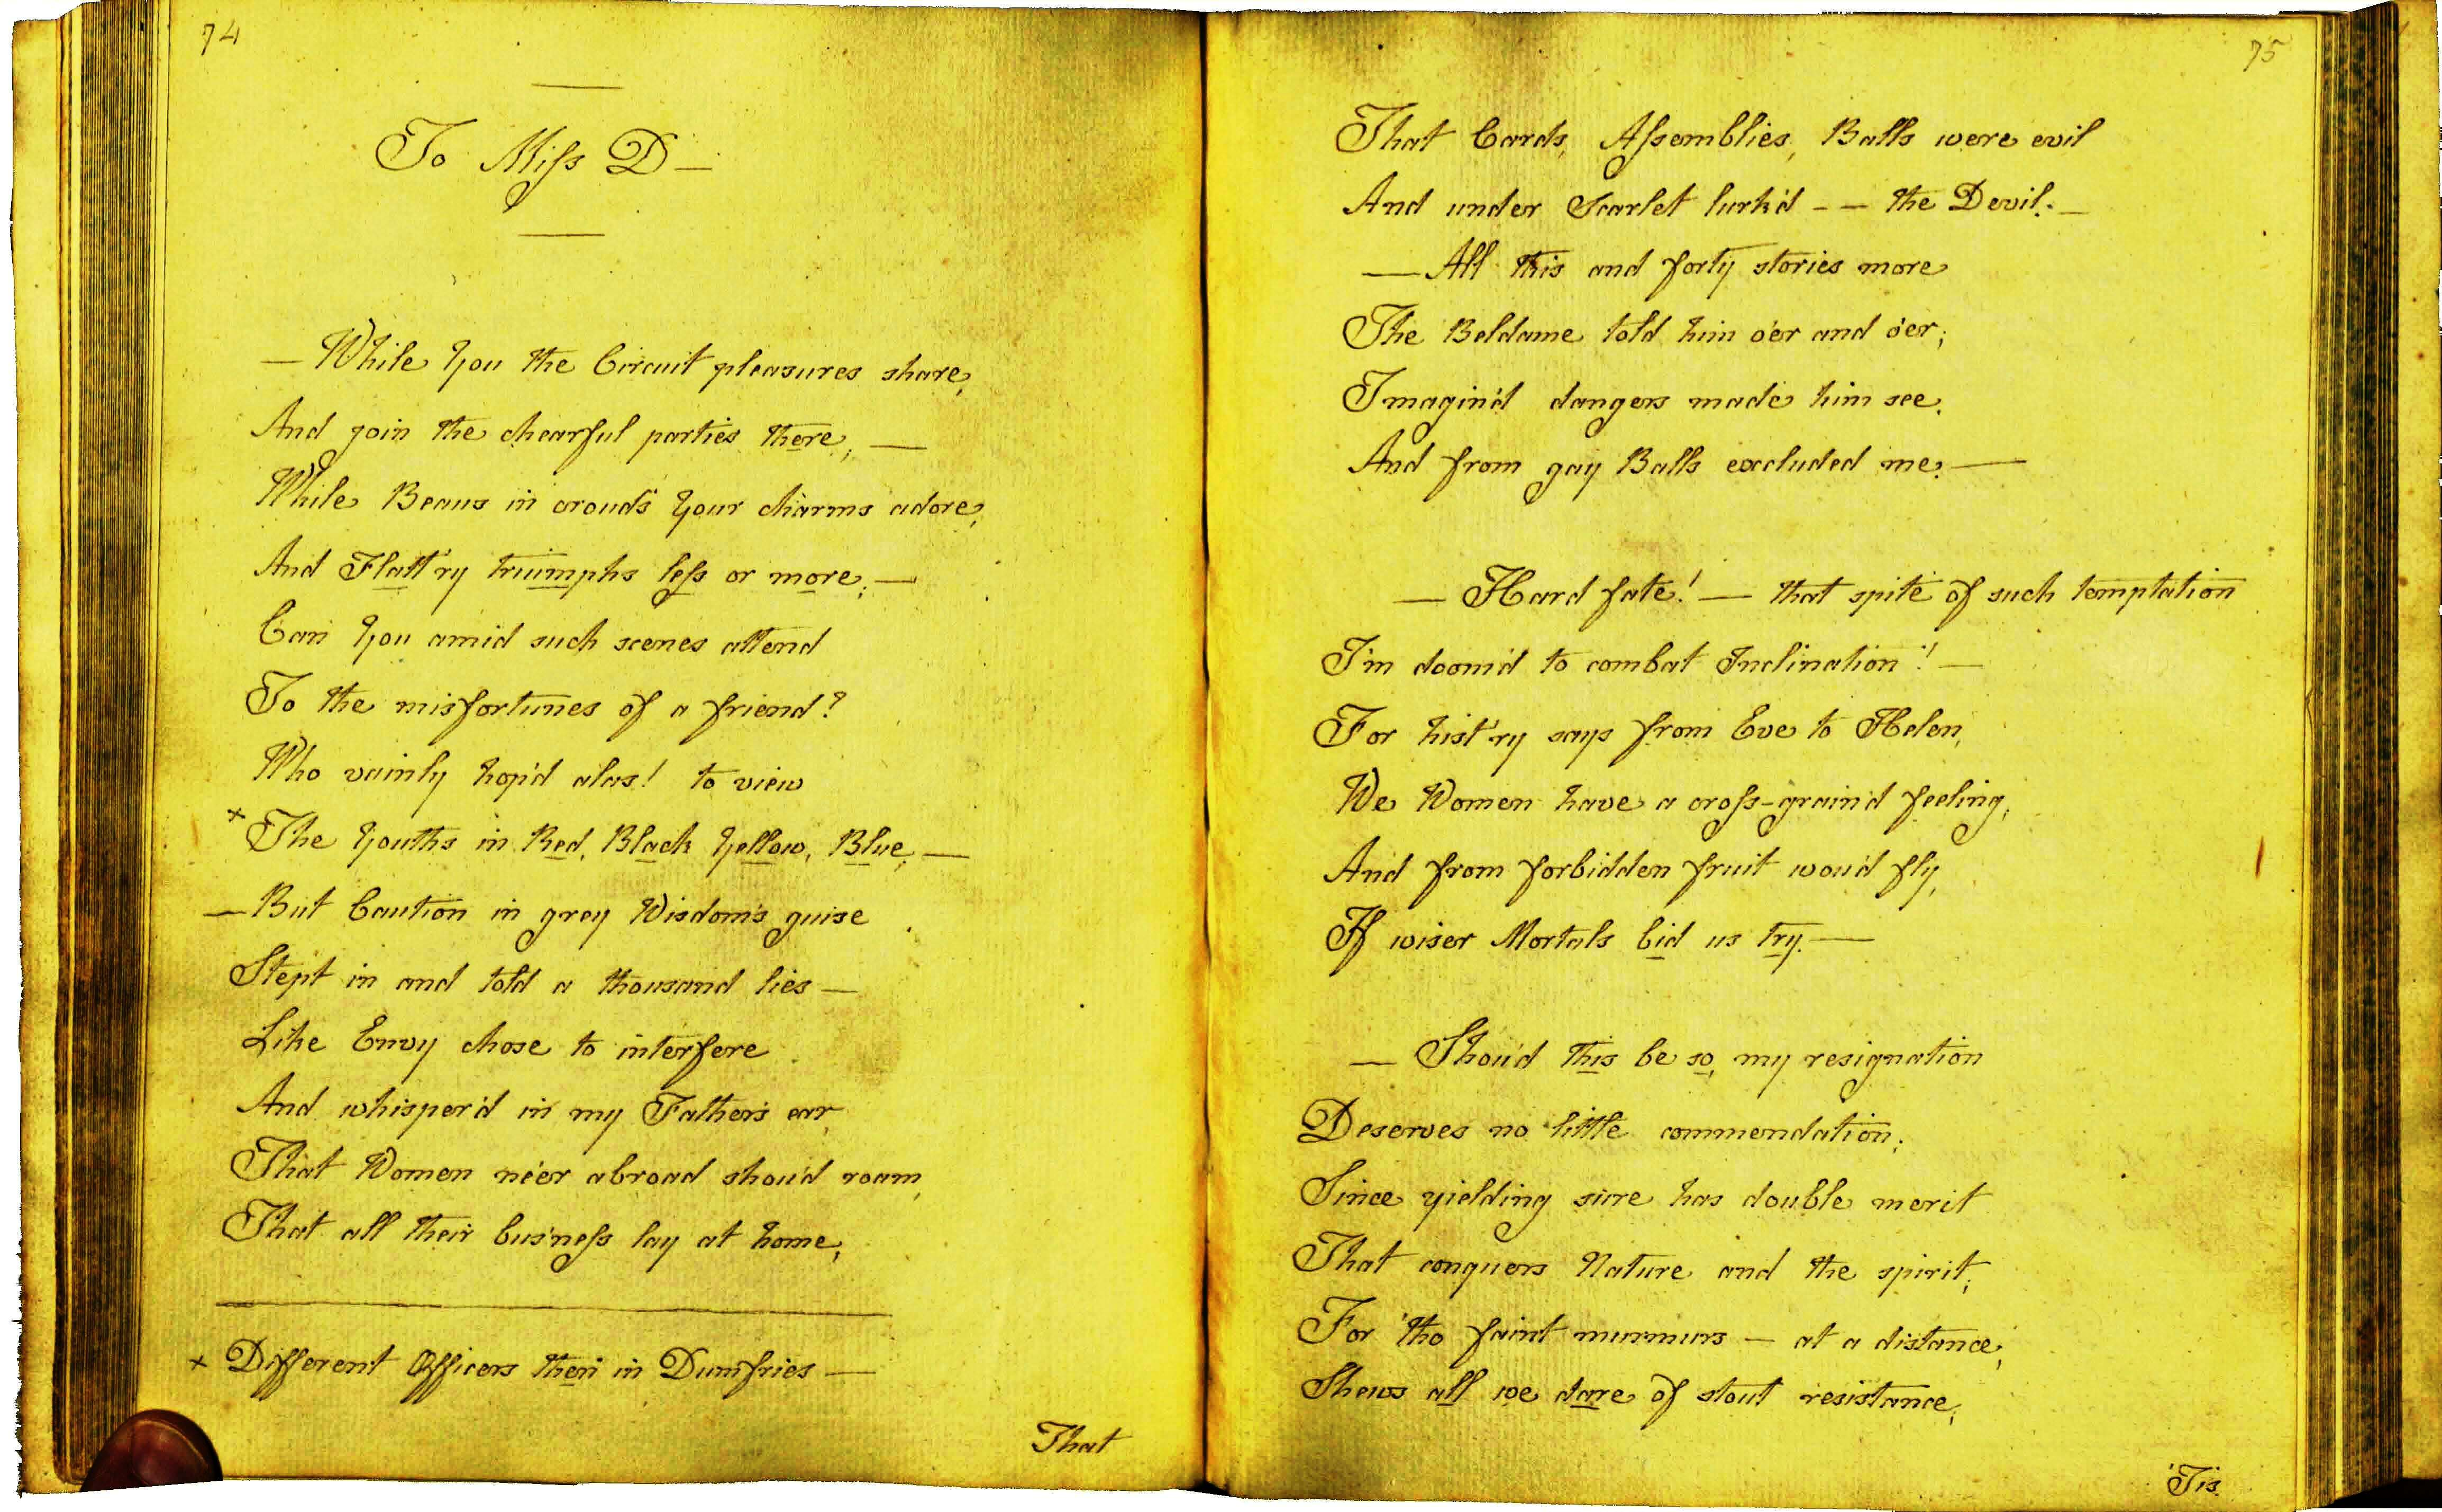 74
To Miſs D—
— While You the Circuit pleasures share,
And join the chearful parties there, —
While Beaus in crouds Your charms adore,
And Flatt'ry triumphs leſs or more; —
Can You amid such scenes attend
To the misfortunes of a friend?
Who vainly hop'd alas! to view
× The Youths in Red, Black Yellow, Blue; —
— But Caution in grey Wisdom's guise
Stept in and told a thousand lies —
Like Envy chose to interfere
And whisper'd in my Father's ear,
That Women ne'er abroad shou'd roam,
That all their bus'neſs lay at home;
× Different Officers then in Dumfries —
That
75
That Cards, Aſsemblies, Balls were evil
And under Scarlet lurk'd – – the Devil. —
— All this and forty stories more
The Beldame told him o'er and o'er;
Imagin'd dangers made him see,
And from gay Balls excluded me. —
— Hard fate! — that spite of such temptation
I'm doom'd to combat Inclination! —
For hist'ry says from Eve to Helen,
We Women have a croſs-grain'd feeling;
And from forbidden fruit wou'd fly,
If wiser Mortals bid us try. —
— Shou'd this be so, my resignation
Deserves no little commendation;
Since yielding sure has double merit
That conquers Nature and the spirit;
For 'tho faint murmurs — at a distance,
Shews all we dare of stout resistance;
'Tis